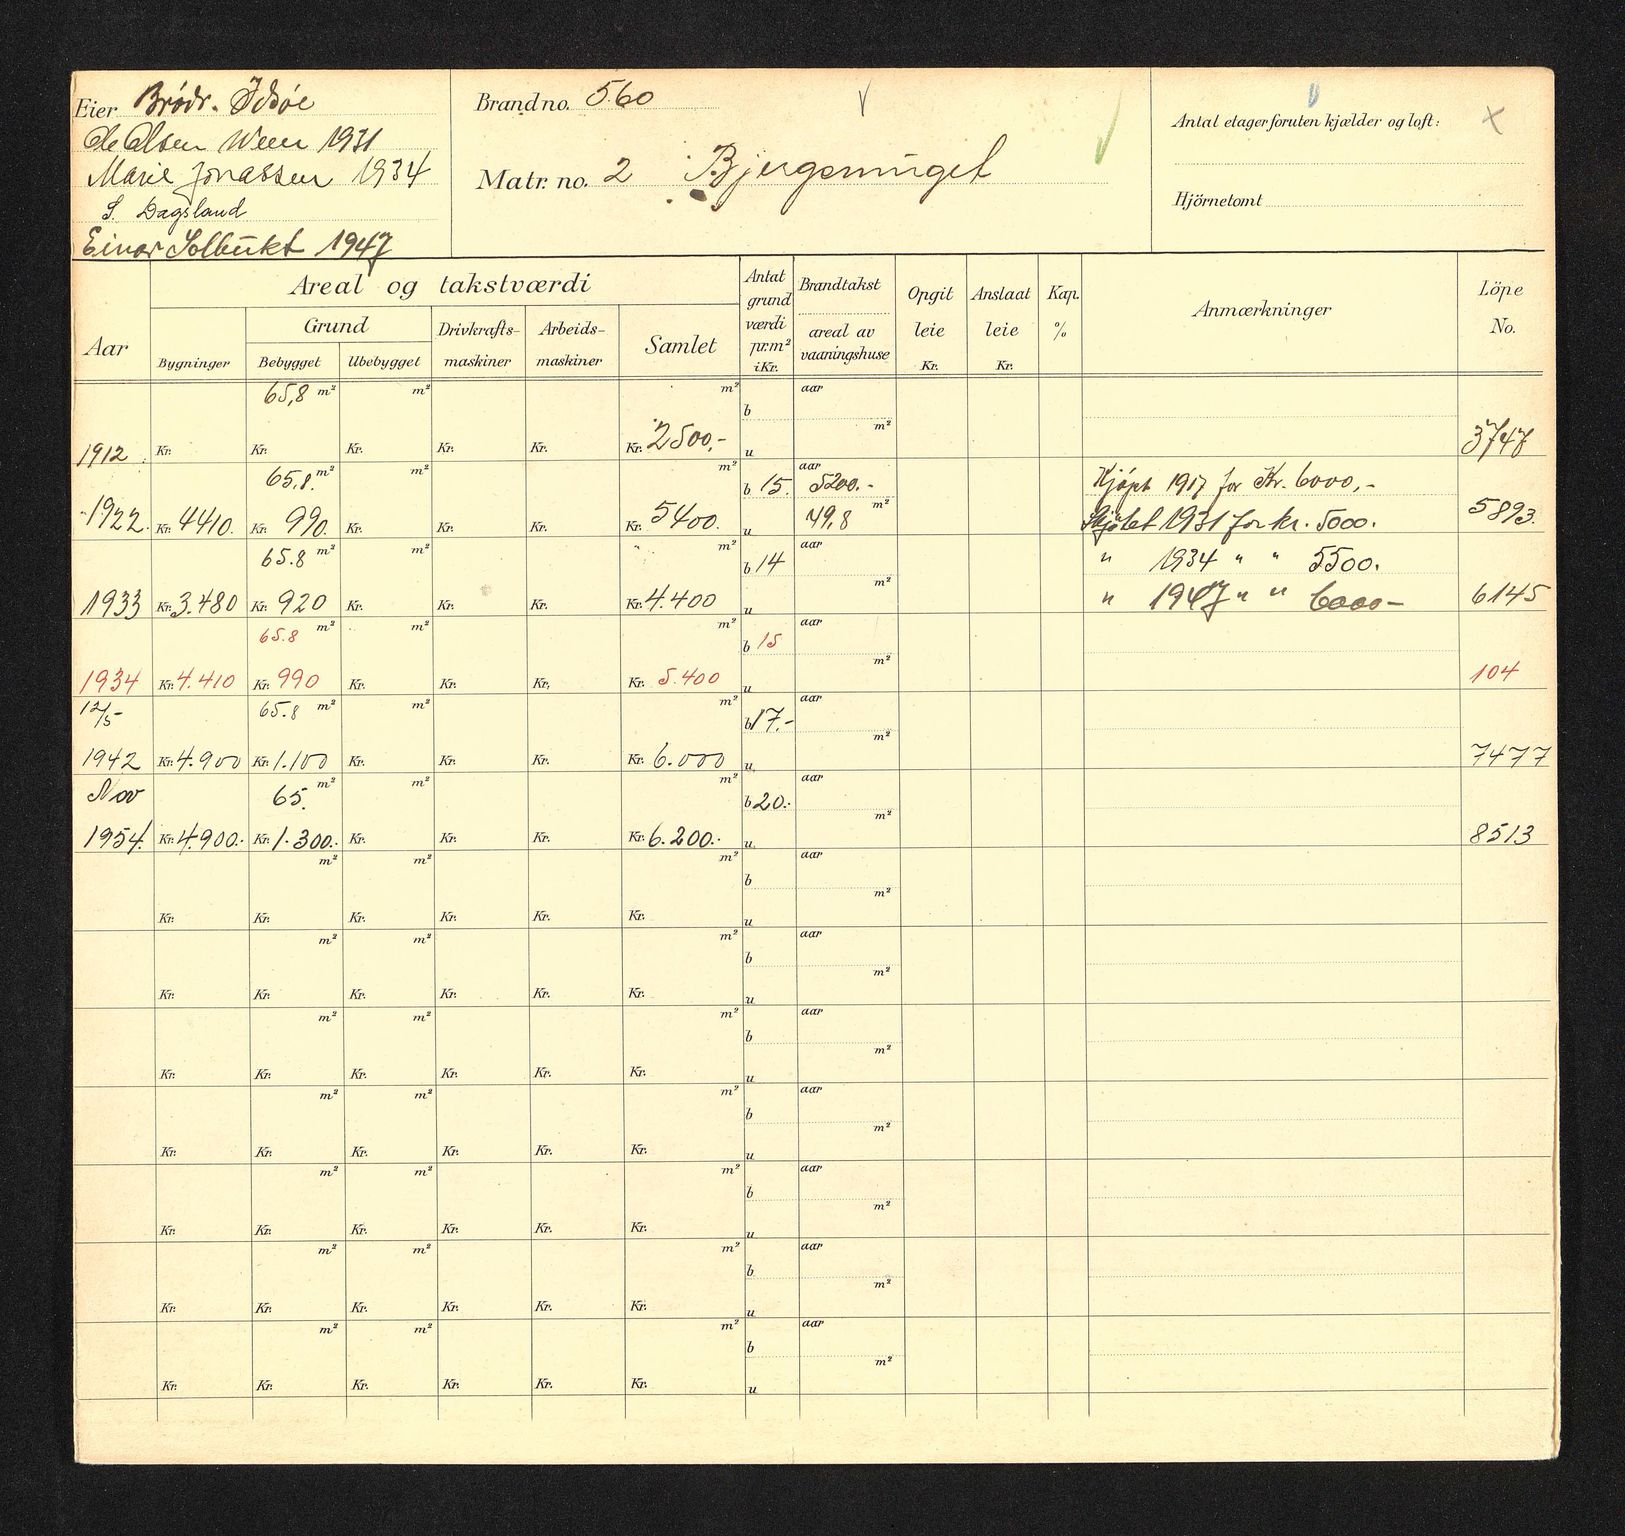 Eier Brödr. Idsöe
Ole Olsen Ween 1931
Marie Jonassen 1934
S. Dagsland
Einar Solbukt 1947
Brand no. 560
Matr. no. 2
Antal etager foruten kjælder og loft: x
Hjörnetomt
Aar
Areal og takstværdi
Bygninger
Grund
Bebygget
Ubebygget
Drivkrafts-maskiner
Arbeids-maskiner
Samlet
Antat grundværdi pr. m² i Kr.
Brandtakst
areal av vaaningshuse
Opgit leie Kr.
Anslaat leie Kr.
Kap. %
Anmærkninger
Löpe No.
65,8 m² m² m² b aar
m²
1912 Kr. Kr. Kr. Kr. Kr. Kr. 2500,- u 3747
65,8 m² m² m² b 15. aar 5200.- Kjöpt 1917 for Kr. 6000,-
1922. Kr. 4410. Kr. 990. Kr. Kr. Kr. Kr. 5400. u 49,8 m² Skjötet 1931 for kr. 5000. 5893.
65.8 m² m² m² b 14 aar " 1934 " " 5500.
1933 Kr. 3.480 Kr. 920 Kr. Kr. Kr. Kr. 4.400 u m² " 1947 " " 6000- 6145
65.8 m² m² m² b 15 aar
m²
1934 Kr. 4.410 Kr. 990 Kr. Kr. Kr. Kr. 5.400 u 104
12/5- 65.8 m² m² m² b 17.- aar
m²
1942 Kr. 4.900 Kr. 1.100 Kr. Kr. Kr. Kr. 6.000 u 7477
Nov 65. m² m² m² b 20.- aar
m²
1954. Kr. 4.900.- Kr. 1.300.- Kr. Kr. Kr. Kr. 6.200.- u 8513
m² m² m² b aar
m²
Kr. Kr. Kr. Kr. Kr. Kr. u
m² m² m² b aar
m²
Kr. Kr. Kr. Kr. Kr. Kr. u
m² m² m² b aar
m²
Kr. Kr. Kr. Kr. Kr. Kr. u
m² m² m² b aar
m²
Kr. Kr. Kr. Kr. Kr. Kr. u
m² m² m² b aar
m²
Kr. Kr. Kr. Kr. Kr. Kr. u
m² m² m² b aar
m²
Kr. Kr. Kr. Kr. Kr. Kr. u
m² m² m² b aar
m²
Kr. Kr. Kr. Kr. Kr. Kr. u